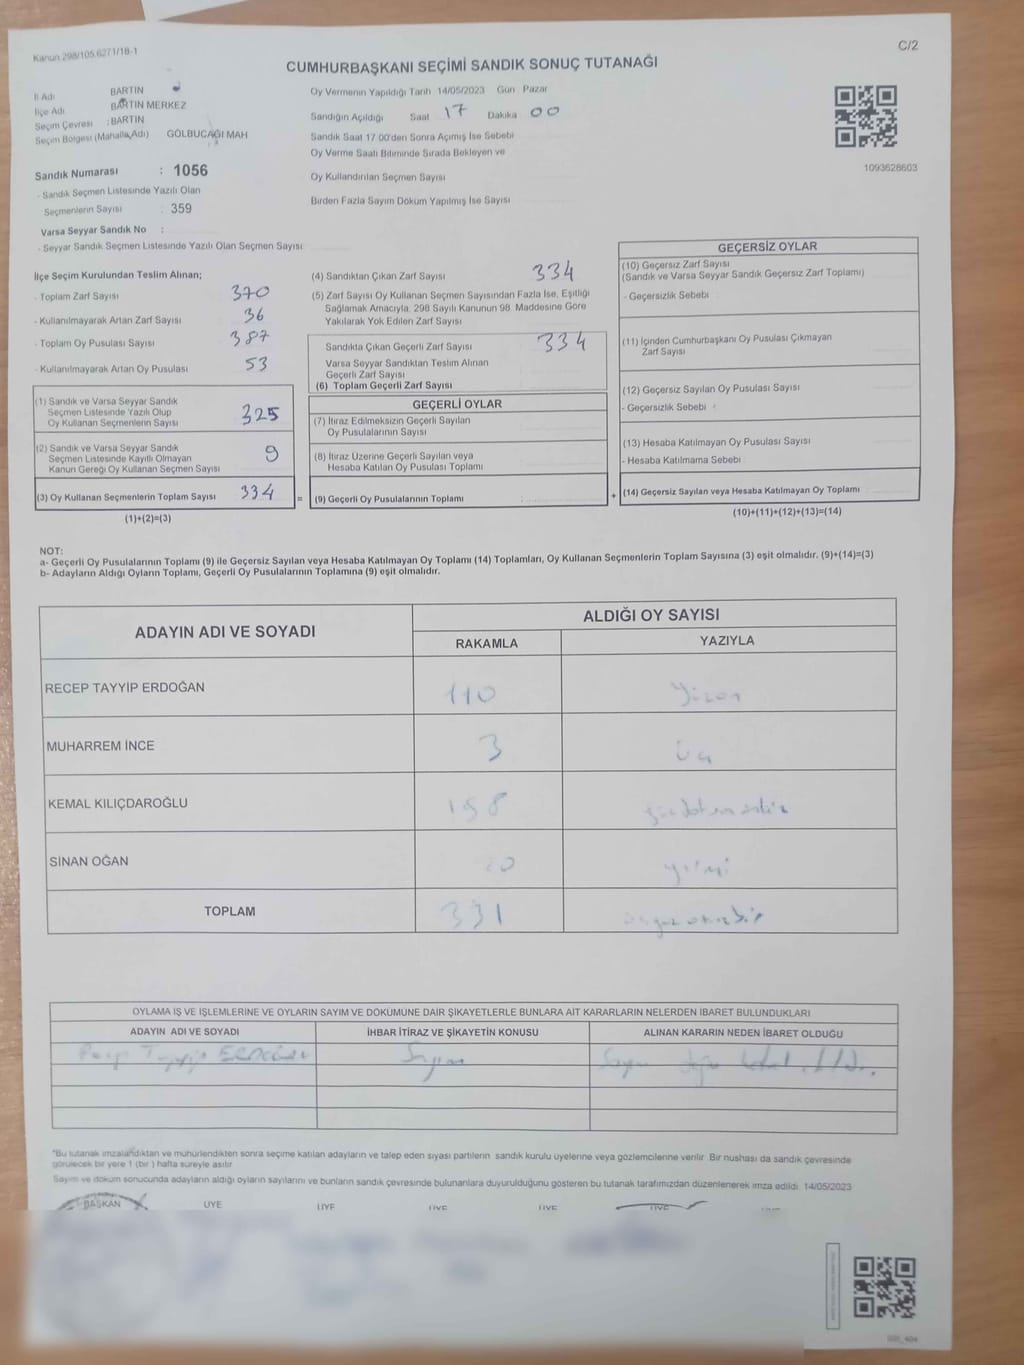 Kanun 298/105.6271/18-1
C/2
CUMHURBAŞKANI SEÇİMİ SANDIK SONUÇ TUTANAĞI
İl Adı BARTIN
İlçe Adı BARTIN MERKEZ
Seçim Çevresi : BARTIN
Seçim Bölgesi (Mahalle Adı) GÖLBUCAĞI MAH
Sandık Numarası : 1056
- Sandık Seçmen Listesinde Yazılı Olan
Seçmenlerin Sayısı : 359
Varsa Seyyar Sandık No :
- Seyyar Sandık Seçmen Listesinde Yazılı Olan Seçmen Sayısı
Oy Vermenin Yapıldığı Tarih 14/05/2023 Gün Pazar
Sandığın Açıldığı Saat 17 Dakika 00
Sandık Saat 17.00'den Sonra Açımış İse Sebebi
Oy Verme Saati Bitiminde Sırada Bekleyen ve
Oy Kullandırılan Seçmen Sayısı
Birden Fazla Sayım Döküm Yapılmış İse Sayısı
1093628603
İlçe Seçim Kurulundan Teslim Alınan;
- Toplam Zarf Sayısı 370
- Kullanılmayarak Artan Zarf Sayısı 36
- Toplam Oy Pusulası Sayısı 387
- Kullanılmayarak Artan Oy Pusulası 53
(1) Sandık ve Varsa Seyyar Sandık
Seçmen Listesinde Yazılı Olup
Oy Kullanan Seçmenlerin Sayısı 325
(2) Sandık ve Varsa Seyyar Sandık
Seçmen Listesinde Kayıtlı Olmayan
Kanun Gereği Oy Kullanan Seçmen Sayısı 9
(3) Oy Kullanan Seçmenlerin Toplam Sayısı 334 =
(1)+(2)=(3)
(4) Sandıktan Çıkan Zarf Sayısı 334
(5) Zarf Sayısı Oy Kullanan Seçmen Sayısından Fazla İse, Eşitliği
Sağlamak Amacıyla, 298 Sayılı Kanunun 98. Maddesine Göre
Yakılarak Yok Edilen Zarf Sayısı
Sandıkta Çıkan Geçerli Zarf Sayısı 334
Varsa Seyyar Sandıktan Teslim Alınan
Geçerli Zarf Sayısı
(6) Toplam Geçerli Zarf Sayısı
GEÇERLİ OYLAR
(7) İtiraz Edilmeksizin Geçerli Sayılan
Oy Pusulalarının Sayısı
(8) İtiraz Üzerine Geçerli Sayılan veya
Hesaba Katılan Oy Pusulası Toplamı
(9) Geçerli Oy Pusulalarının Toplamı : +
GEÇERSİZ OYLAR
(10) Geçersiz Zarf Sayısı
(Sandık ve Varsa Seyyar Sandık Geçersiz Zarf Toplamı)
- Geçersizlik Sebebi
(11) İçinden Cumhurbaşkanı Oy Pusulası Çıkmayan
Zarf Sayısı
(12) Geçersiz Sayılan Oy Pusulası Sayısı
- Geçersizlik Sebebi
(13) Hesaba Katılmayan Oy Pusulası Sayısı
- Hesaba Katılmama Sebebi
(14) Geçersiz Sayılan veya Hesaba Katılmayan Oy Toplamı
(10)+(11)+(12)+(13)=(14)
NOT:
a- Geçerli Oy Pusulalarının Toplamı (9) ile Geçersiz Sayılan veya Hesaba Katılmayan Oy Toplamı (14) Toplamları, Oy Kullanan Seçmenlerin Toplam Sayısına (3) eşit olmalıdır. (9)+(14)=(3)
b- Adayların Aldığı Oyların Toplamı, Geçerli Oy Pusulalarının Toplamına (9) eşit olmalıdır.
ADAYIN ADI VE SOYADI
ALDIĞI OY SAYISI
RAKAMLA YAZIYLA
RECEP TAYYİP ERDOĞAN 110 yüzon
MUHARREM İNCE 3 üç
KEMAL KILIÇDAROĞLU 198 yüzdoksansekiz
SİNAN OĞAN 20 yirmi
TOPLAM 331 üçyüzotuzbir
OYLAMA İŞ VE İŞLEMLERİNE VE OYLARIN SAYIM VE DÖKÜMÜNE DAİR ŞİKAYETLERLE BUNLARA AİT KARARLARIN NELERDEN İBARET BULUNDUKLARI
ADAYIN ADI VE SOYADI İHBAR İTİRAZ VE ŞİKAYETİN KONUSU ALINAN KARARIN NEDEN İBARET OLDUĞU
Recep Tayyip ERDOĞAN Sayım Sayım doğru kabul
*Bu tutanak imzalandıktan ve mühürlendikten sonra seçime katılan adayların ve talep eden siyasi partilerin sandık kurulu üyelerine veya gözlemcilerine verilir. Bir nushası da sandık çevresinde
görülecek bir yere 1 (bir ) hafta süreyle asılır
Sayım ve döküm sonucunda adayların aldığı oyların sayılarını ve bunların sandık çevresinde bulunanlara duyurulduğunu gösteren bu tutanak tarafımızdan düzenlenerek imza edildi. 14/05/2023
BAŞKAN ÜYE ÜYE ÜYE ÜYE ÜYE